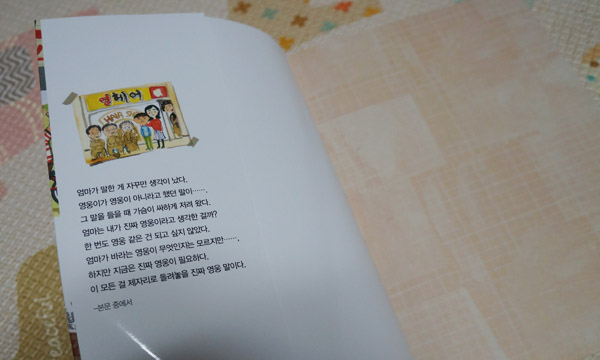 헤어
HAIR
엄마가 말한 게 자꾸만 생각이 났다.
영웅이가 영웅이 아니라고 했던 말이…….
그 말을 들을 때 가슴이 싸하게 저려 왔다.
엄마는 내가 진짜 영웅이라고 생각한 걸까?
한 번도 영웅 같은 건 되고 싶지 않았다.
엄마가 바라는 영웅이 무엇인지는 모르지만……,
하지만 지금은 진짜 영웅이 필요하다.
이 모든 걸 제자리로 돌려놓을 진짜 영웅 말이다.
–본문 중에서
eaceful